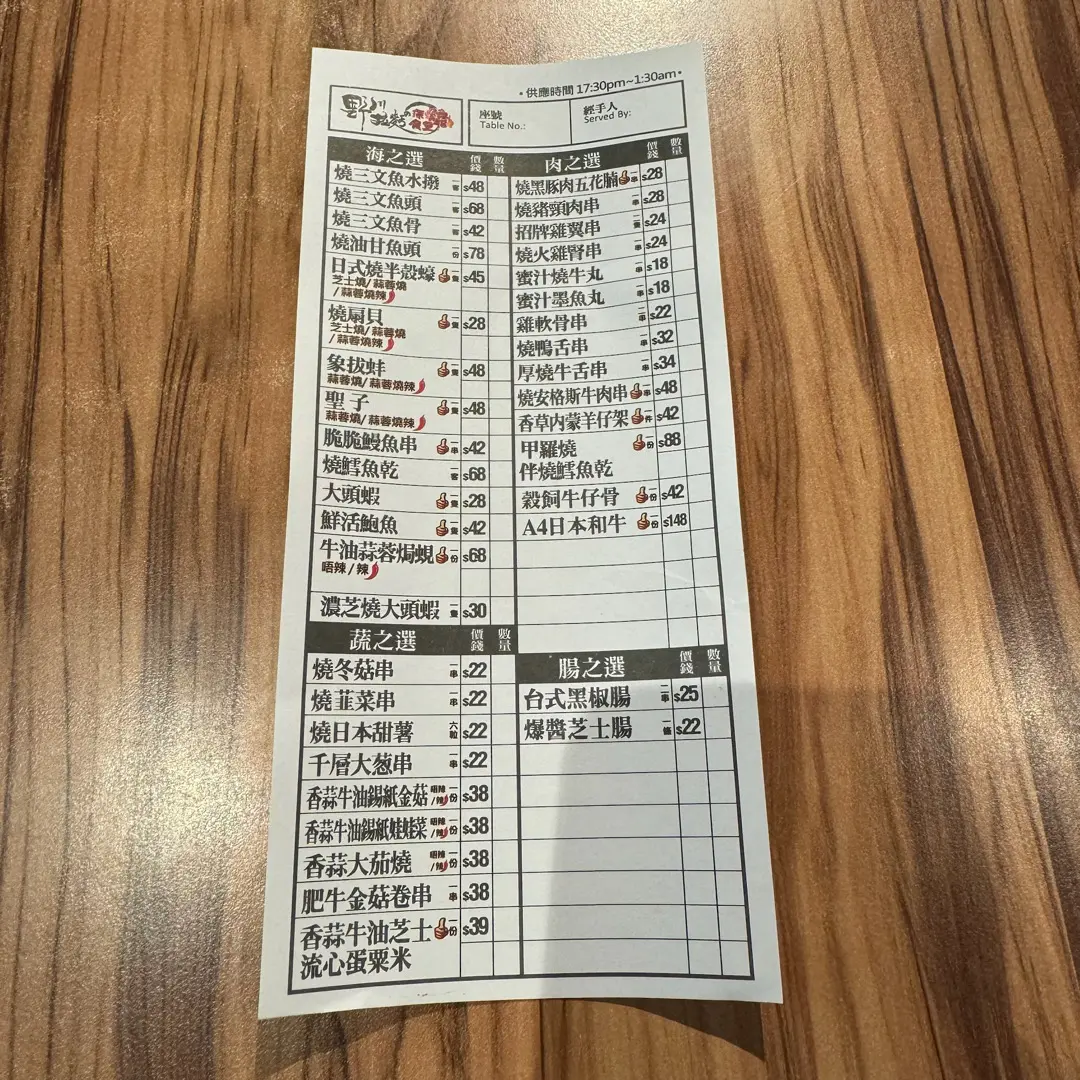 •供應時間 17:30pm~1:30am•
野川
拉麵の
食堂
座號
Table No.:
經手人
Served By:
海之選 價錢 數量
燒三文魚水撥 一客 $48
燒三文魚頭 一客 $68
燒三文魚骨 一客 $42
燒油甘魚頭 一份 $78
日式燒半殼蠔 一隻 $45
芝士燒/蒜蓉燒
/蒜蓉燒辣
燒扇貝 一隻 $28
芝士燒/蒜蓉燒
/蒜蓉燒辣
象拔蚌 一隻 $48
蒜蓉燒/蒜蓉燒辣
聖子 一隻 $48
蒜蓉燒/蒜蓉燒辣
脆脆鰻魚串 一串 $42
燒鱈魚乾 一客 $68
大頭蝦 一隻 $28
鮮活鮑魚 一隻 $42
牛油蒜蓉焗蜆 一份 $68
唔辣/辣
濃芝燒大頭蝦 一隻 $30
蔬之選 價錢 數量
燒冬菇串 一串 $22
燒韮菜串 一串 $22
燒日本甜薯 六粒 $22
千層大葱串 一串 $22
香蒜牛油錫紙金菇 唔辣/辣 一份 $38
香蒜牛油錫紙娃娃菜 唔辣/辣 一份 $38
香蒜大茄燒 唔辣/辣 一份 $38
肥牛金菇卷串 一串 $38
香蒜牛油芝士 一份 $39
流心蛋粟米
肉之選 價錢 數量
燒黑豚肉五花腩 一串 $28
燒豬頸肉串 一串 $28
招牌雞翼串 一隻 $24
燒火雞腎串 一串 $24
蜜汁燒牛丸 一串 $18
蜜汁墨魚丸 一串 $18
雞軟骨串 一串 $22
燒鴨舌串 一串 $32
厚燒牛舌串 一串 $34
燒安格斯牛肉串 一串 $48
香草内蒙羊仔架 一件 $42
甲羅燒 一份 $88
伴燒鱈魚乾
穀飼牛仔骨 一份 $42
A4日本和牛 一份 $148
腸之選 價錢 數量
台式黑椒腸 一串 $25
爆醬芝士腸 一條 $22